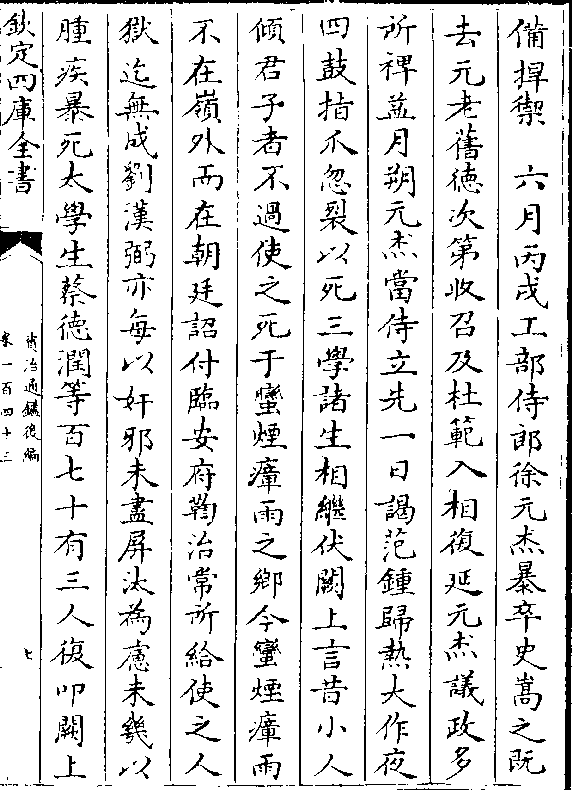 備捍禦　六月丙戌工部侍郎徐元杰暴卒史嵩之既
去元老舊德次第收召及杜範入相復延元杰議政多
所裨益月朔元杰當侍立先一日謁范鍾歸熱大作夜
四鼓指爪忽裂以死三學諸生相繼伏闕上言昔小人
傾君子者不過使之死于蠻煙瘴雨之鄉今蠻煙瘴雨
不在嶺外而在朝廷詔付臨安府鞫治常所給使之人
獄迄無成劉漢弼亦每以奸邪未盡屏汰為慮未幾以
腫疾暴死太學生蔡德潤等百七十有三人復叩闕上
欽定四庫全書
資治通鑑後編
卷一百四十三
七